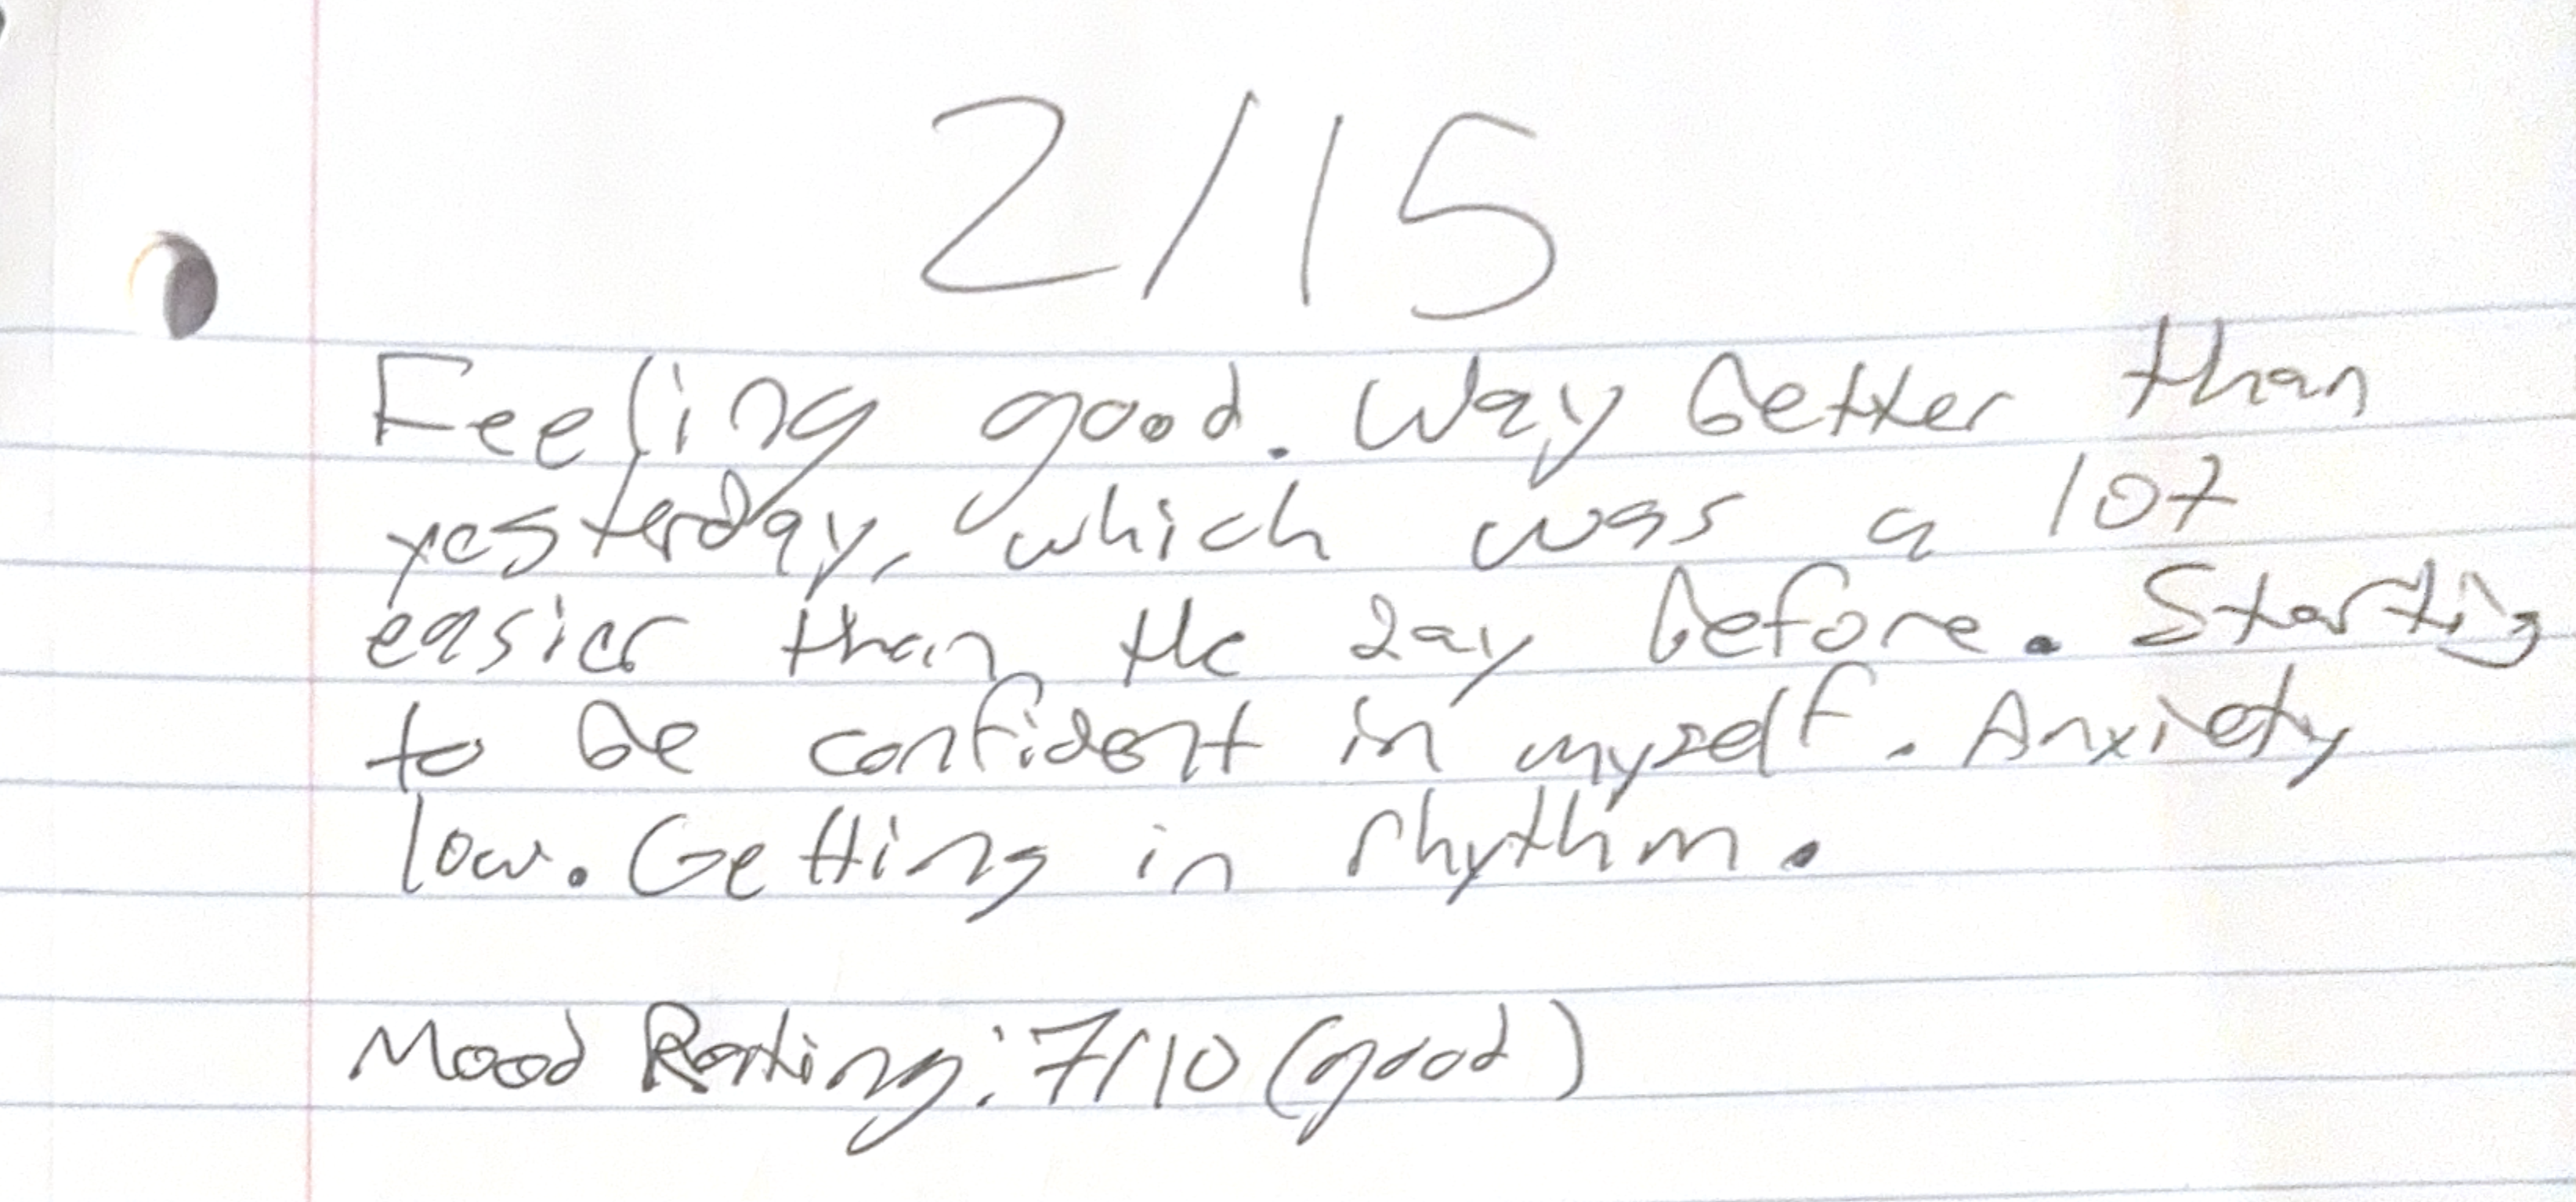 2/15
Feeling good. Way better than
yesterday, which was a lot
easier than the day before. Starting
to be confident in myself. Anxiety
low. Getting in rhythm.
Mood Rating: 7/10 (good)